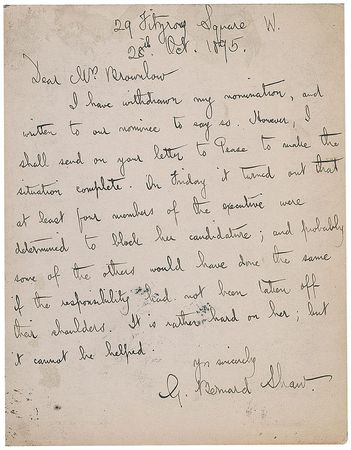 29 Fitzroy Square W.
28th Oct. 1895.
Dear Mrs Brownlow
I have withdrawn my nomination, and
written to our nominee to say so. However, I
shall send on your letter to Pease to make the
situation complete. On Friday it turned out that
at least four members of the executive were
determined to block her candidature; and probably
some of the others would have done the same
if the responsibility had not been taken off
their shoulders. It is rather hard on her; but
it cannot be helped.
yrs sincerely
G. Bernard Shaw.